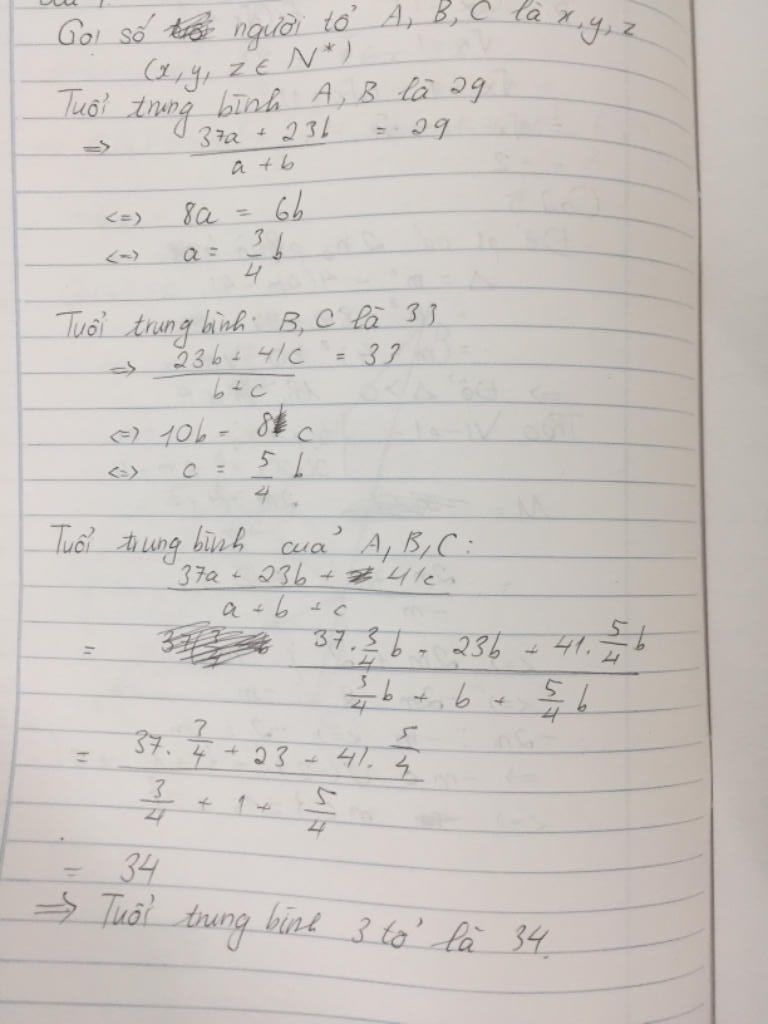 Gọi số người tổ A, B, C là x, y, z
(x, y, z ∈ N*)
Tuổi trung bình A, B là 29
=> (37a + 23b)/(a + b) = 29
<=> 8a = 6b
<=> a = 3/4 b
Tuổi trung bình B, C là 33
=> (23b + 41c)/(b + c) = 33
<=> 10b = 8 c
<=> c = 5/4 b
Tuổi trung bình của A, B, C:
(37a + 23b + 41c)/(a + b + c)
= (37. 3/4 b + 23b + 41. 5/4 b)/(3/4 b + b + 5/4 b)
= (37. 3/4 + 23 + 41. 5/4)/(3/4 + 1 + 5/4)
= 34
=> Tuổi trung bình 3 tổ là 34.